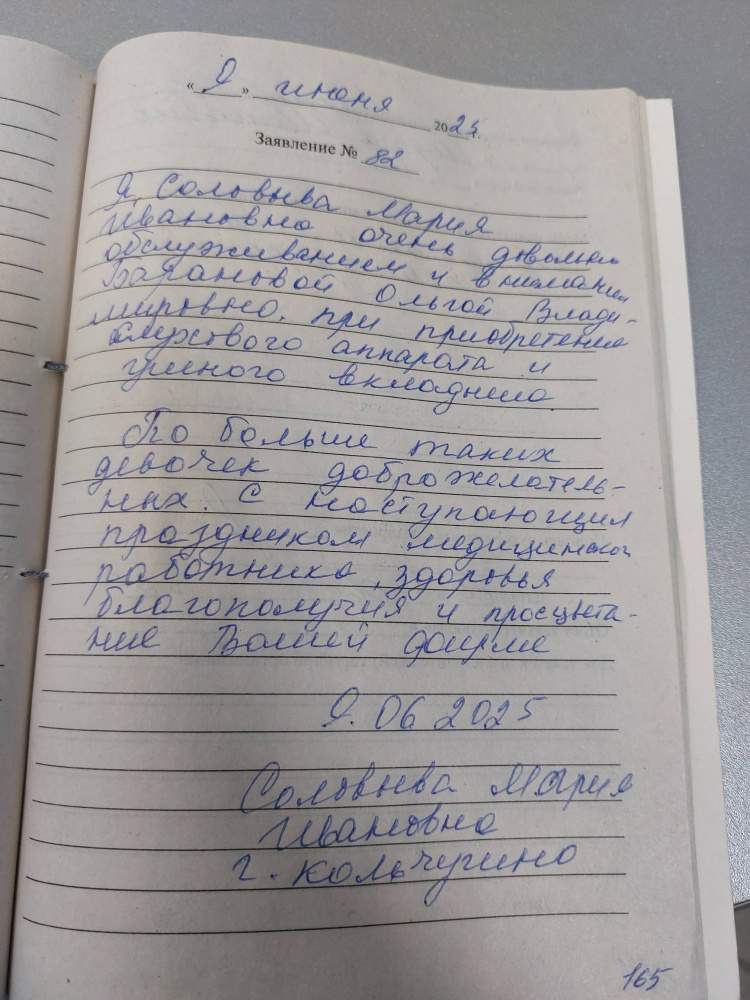 «9» июня 2025 г.
Заявление № 82
Я, Соловьева Мария
Ивановна очень довольна
обслуживанием и внимания
Барановой Ольгой Влади-
мировна, при приобретение
слухового аппарата и
ушного вкладыша
По больше таких
девочек доброжелатель-
ных. С наступающим
праздником медицинского
работника, здоровья
благополучия и процвета-
ние Вашей фирме
9.06 2025
Соловьева Мария
Ивановна
г. Кольчугино
165